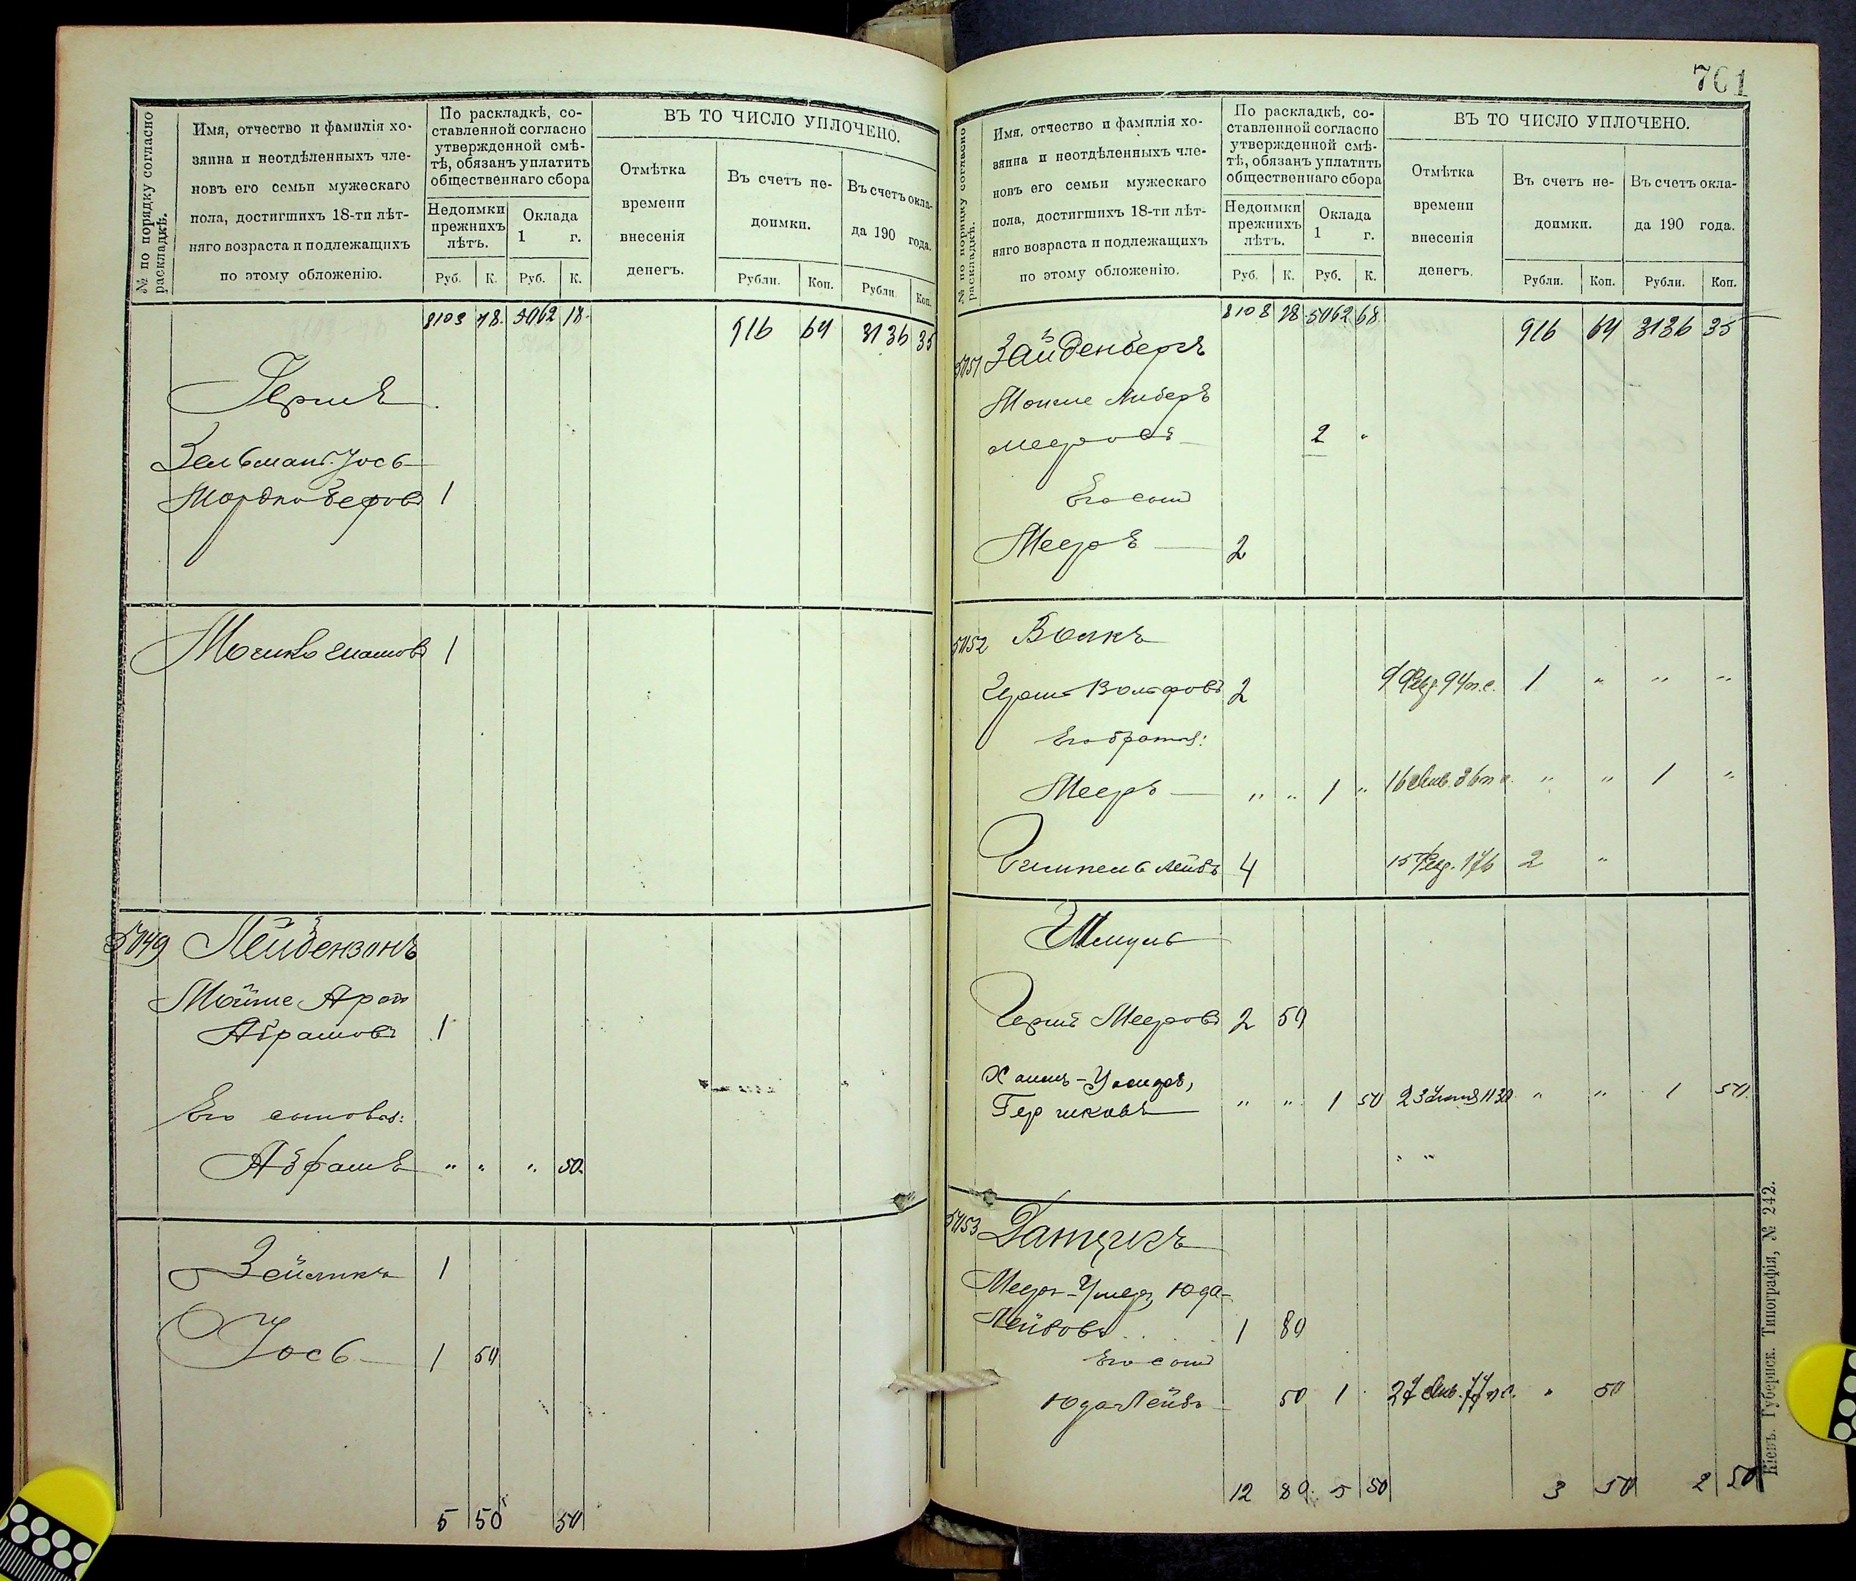 761
№ по порядку согласно
раскладкѣ.
Имя, отчество и фамилія хо-
зяина и неотдѣленныхъ чле-
новъ его семьи мужескаго
пола, достигшихъ 18-ти лѣт-
няго возраста и подлежащихъ
по этому обложенію.
По раскладкѣ, со-
ставленной согласно
утвержденной смѣ-
тѣ, обязанъ уплатить
общественнаго сбора
Недоимки
прежнихъ
лѣтъ.
Оклада
1 г.
Руб. К. Руб. К.
ВЪ ТО ЧИСЛО УПЛОЧЕНО.
Отмѣтка
времени
внесенія
денегъ.
Въ счетъ не-
доимки.
Въ счетъ окла-
да 190 года.
Рубли. Коп. Рубли Коп.
8103 78 5062 18 916 64 3136 35
Гершъ
Зельманъ Іось
1
Мошко
1
5049 Лейдензонъ
Мойше Аронъ
Абрамовъ 1
Его сыновья:
Абрамъ " " " 50
Зейликъ 1
Іось 1 50
5 50 50
№ по порядку согласно
раскладкѣ.
Имя, отчество и фамилія хо-
зяина и неотдѣленныхъ чле-
новъ его семьи мужескаго
пола, достигшихъ 18-ти лѣт-
няго возраста и подлежащихъ
по этому обложенію.
По раскладкѣ, со-
ставленной согласно
утвержденной смѣ-
тѣ, обязанъ уплатить
общественнаго сбора
Недоимки
прежнихъ
лѣтъ.
Оклада
1 г.
Руб. К. Руб. К.
ВЪ ТО ЧИСЛО УПЛОЧЕНО.
Отмѣтка
времени
внесенія
денегъ.
Въ счетъ не-
доимки.
Въ счетъ окла-
да 190 года.
Рубли. Коп. Рубли. Коп.
8108 28 5062 68 916 64 3136 35
5051 Зайденбергъ
Мееровъ 2 "
Его сынъ
Мееръ 2
5052 Волкъ
Вольфовъ 2 1 " " "
Его братья:
Мееръ " " 1 " " " 1 "
Гимпель Лейбъ 4 2 "
Шмуль
Гершъ Мееровъ 2 50
Гершковъ " " 1 50 " " 1 50
" "
5053
Лейбовъ 1 80
Его сынъ
Юда Лейбъ 50 1 " 50
12 80 5 50 3 50 2 50
Кіевъ. Губернск. Типографія, № 242.